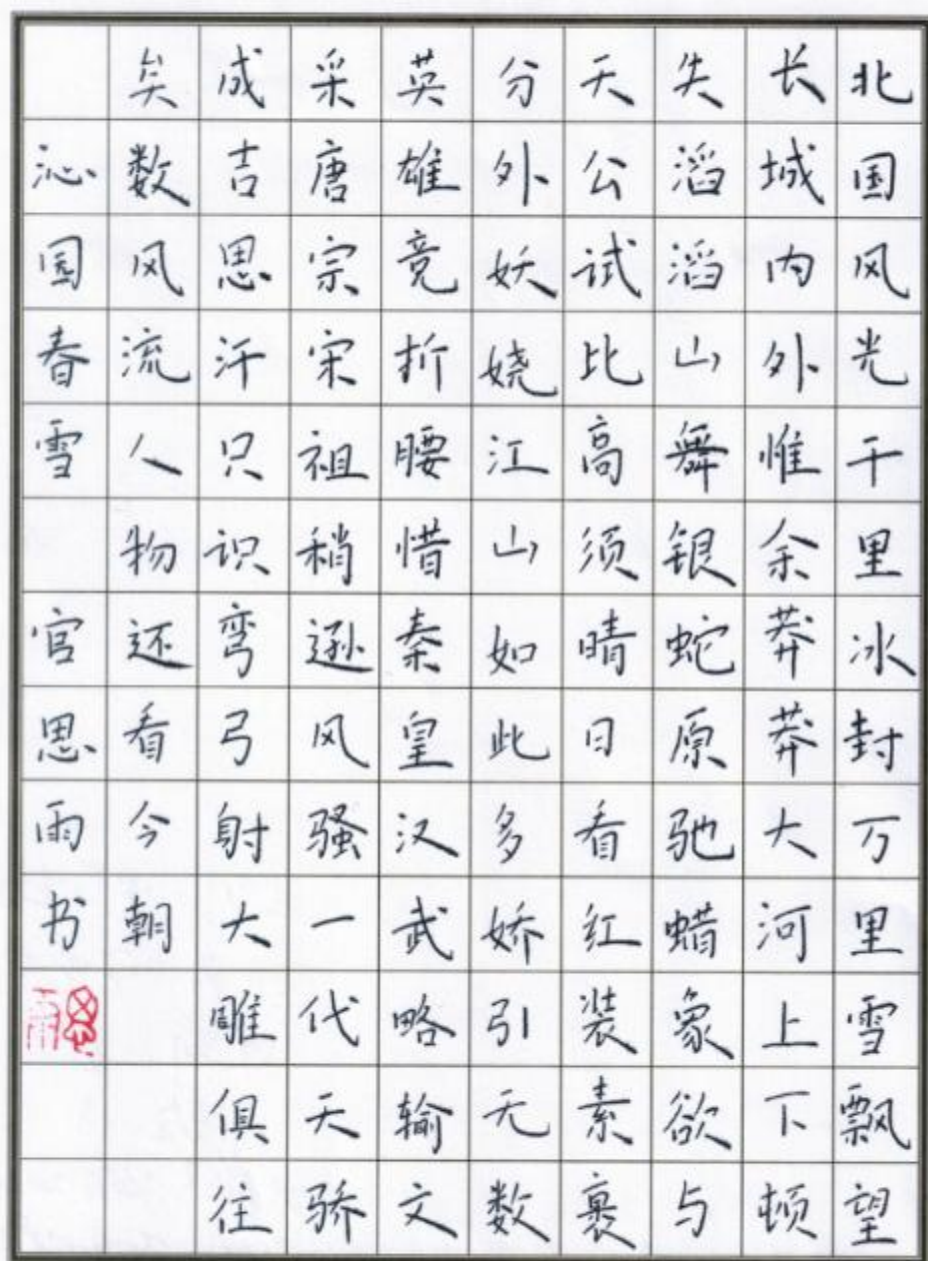 北国风光千里冰封万里雪飘望
长城内外惟余莽莽大河上下顿
失滔滔山舞银蛇原驰蜡象欲与
天公试比高须晴日看红装素裹
分外妖娆江山如此多娇引无数
英雄竞折腰惜秦皇汉武略输文
采唐宗宋祖稍逊风骚一代天骄
成吉思汗只识弯弓射大雕俱往
矣数风流人物还看今朝
沁园春雪 官思雨书